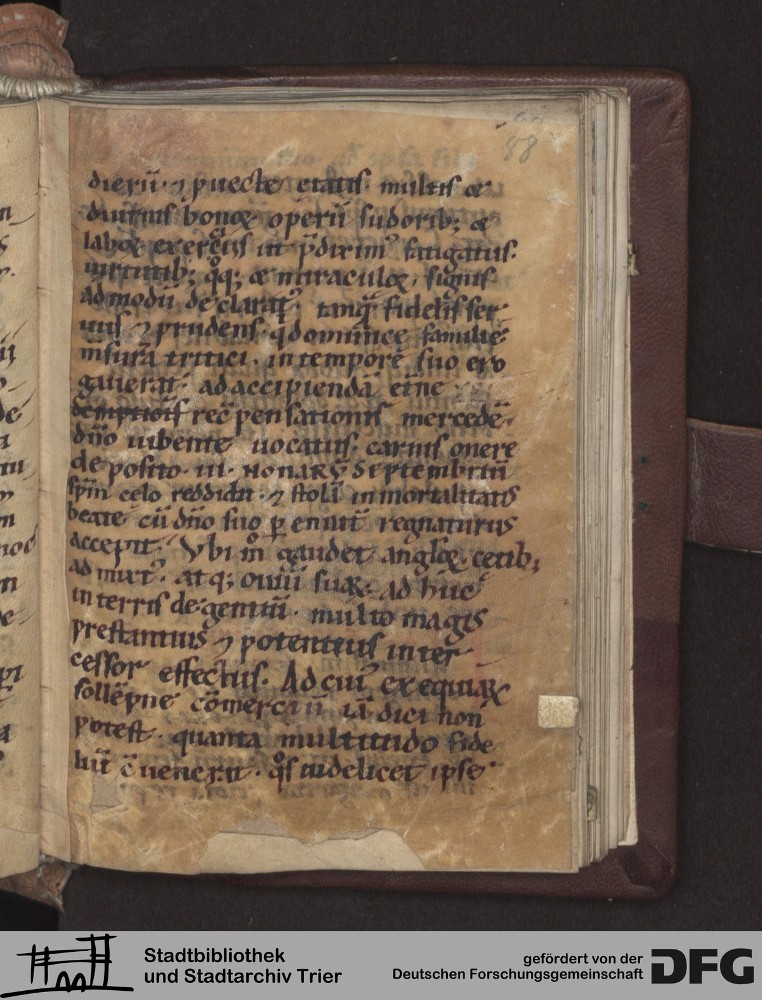 88
dierū· ⁊ puecte etatis· multis &
diutnis bonoꝝ operū sudorib; &
laboꝝ exercits ut p̄dixim᷒ fatigatus·
uirtutib; q͛q; & miraculoꝝ· signis
admodū declarat᷒· tanq̄ fidelis ser
uus ⁊ prudens· q̄ dominice familie
m̄surā tritici· in tempore suo ero
gauerat· ad accipiendā etn̄e
rec̄pensationis mercedē·
dn̄o iubente uocatus· carnis onere
deposito· iii· NONARV̄ Septembriū
sp̄m celo reddidit· ⁊ stolā inmortalitatis
beate cū dn̄o suo ꝑenniť regnaturus
accepit· Vbi m̊ gaudet angl̄oꝝ cetib;
admixt᷒· atq; ouiū suaꝝ ad huc
in terris degentiū· multo magis
prestantius ⁊ potentius inter
cessor effectus· Ad cui᷒ exequiaꝝ
sollēpne cōmerciū iā dici non
potest· quanta multitudo fide
liū c̄uenerit· q͛s uidelicet ipse
Stadtbibliothek
und Stadtarchiv Trier
gefördert von der
Deutschen Forschungsgemeinschaft
DFG